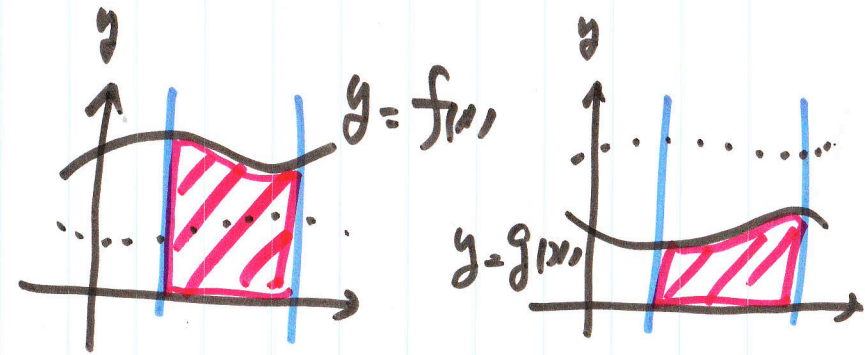 y
y = f(x)
y
y = g(x)